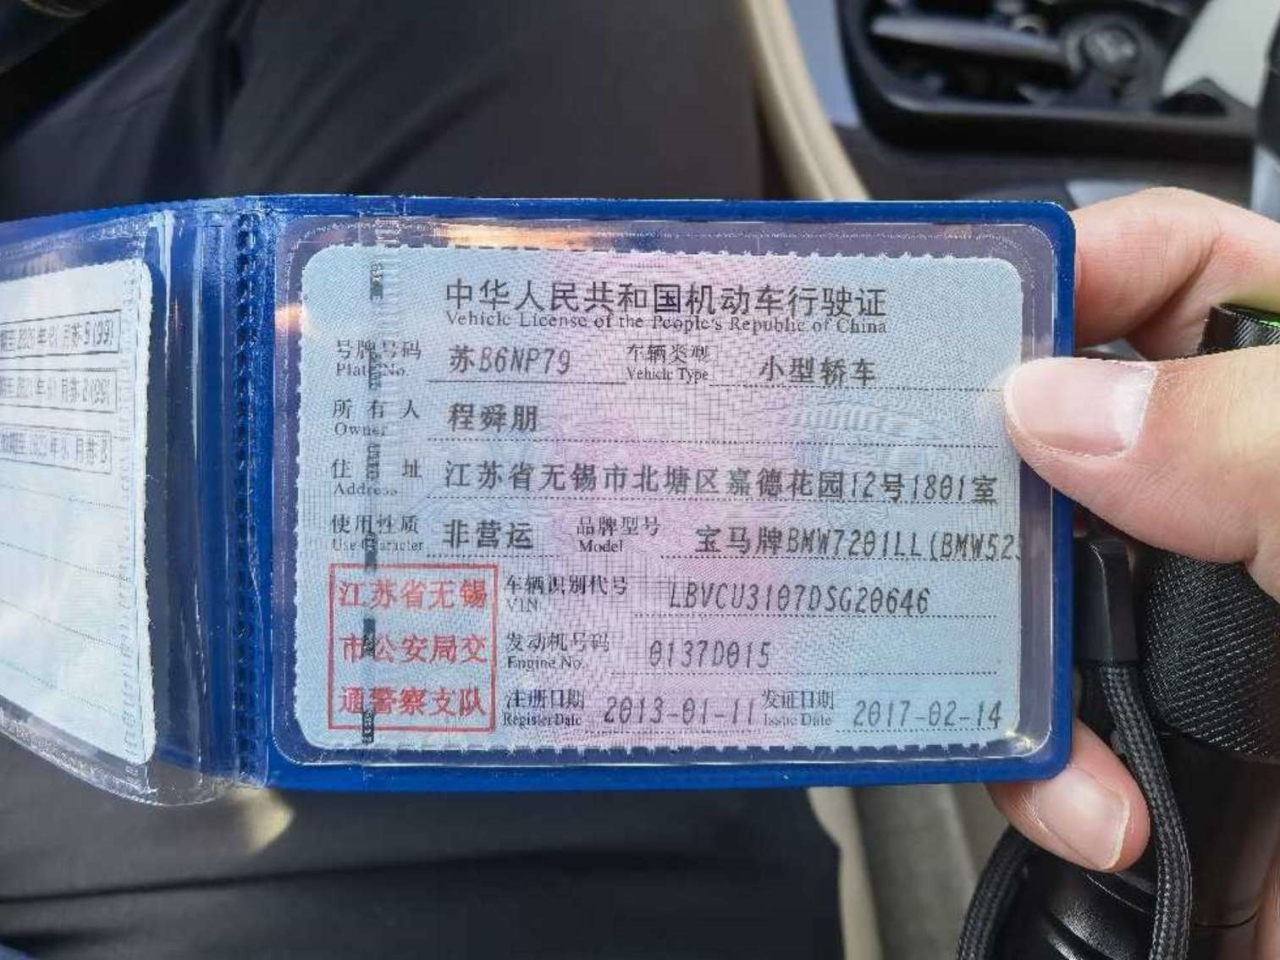 中华人民共和国机动车行驶证
Vehicle License of the People's Republic of China
号牌号码 苏B6NP79 车辆类型 小型轿车
Plate No. Vehicle Type
所有人 程舜朋
Owner
住址 江苏省无锡市北塘区嘉德花园12号1801室
Address
使用性质 非营运 品牌型号 宝马牌BMW7201LL(BMW52
Use Character Model
江苏省无锡
市公安局交
通警察支队
车辆识别代号 LBVCU3107DSG20646
VIN
发动机号码 0137D015
Engine No.
注册日期 2013-01-11 发证日期 2017-02-14
Register Date Issue Date